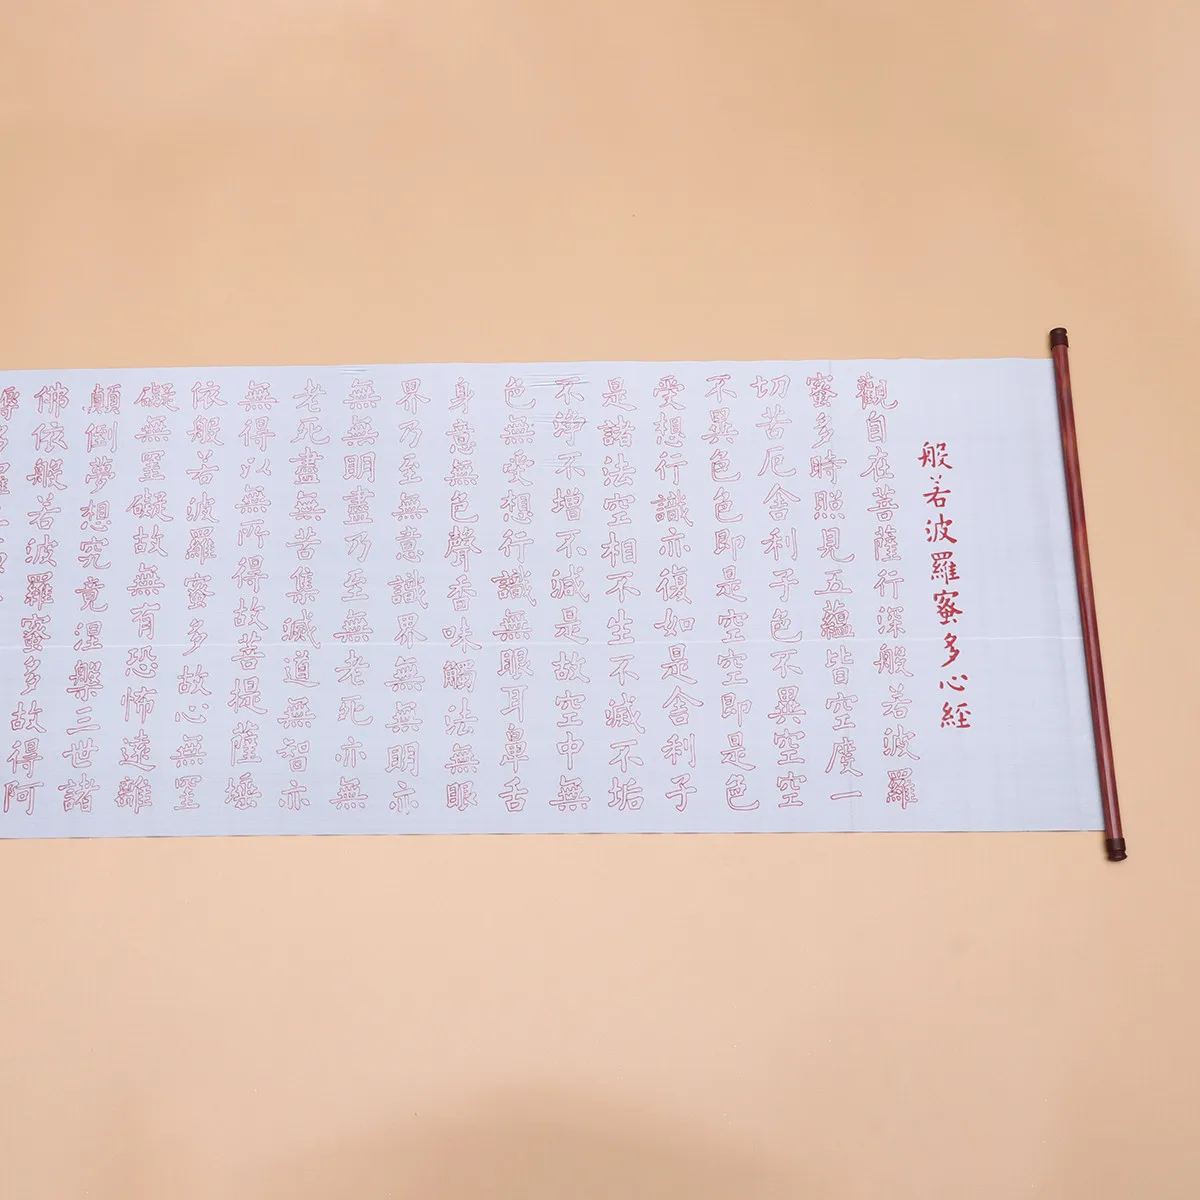 般若波羅蜜多心經
觀自在菩薩行深般若波羅
蜜多時照見五蘊皆空度一
切苦厄舍利子色不異空空
不異色色即是空空即是色
受想行識亦復如是舍利子
是諸法空相不生不滅不垢
不淨不增不減是故空中無
色無受想行識無眼耳鼻舌
身意無色聲香味觸法無眼
界乃至無意識界無無明亦
無無明盡乃至無老死亦無
老死盡無苦集滅道無智亦
無得以無所得故菩提薩埵
依般若波羅蜜多故心無罣
礙無罣礙故無有恐怖遠離
顛倒夢想究竟涅槃三世諸
佛依般若波羅蜜多故得阿